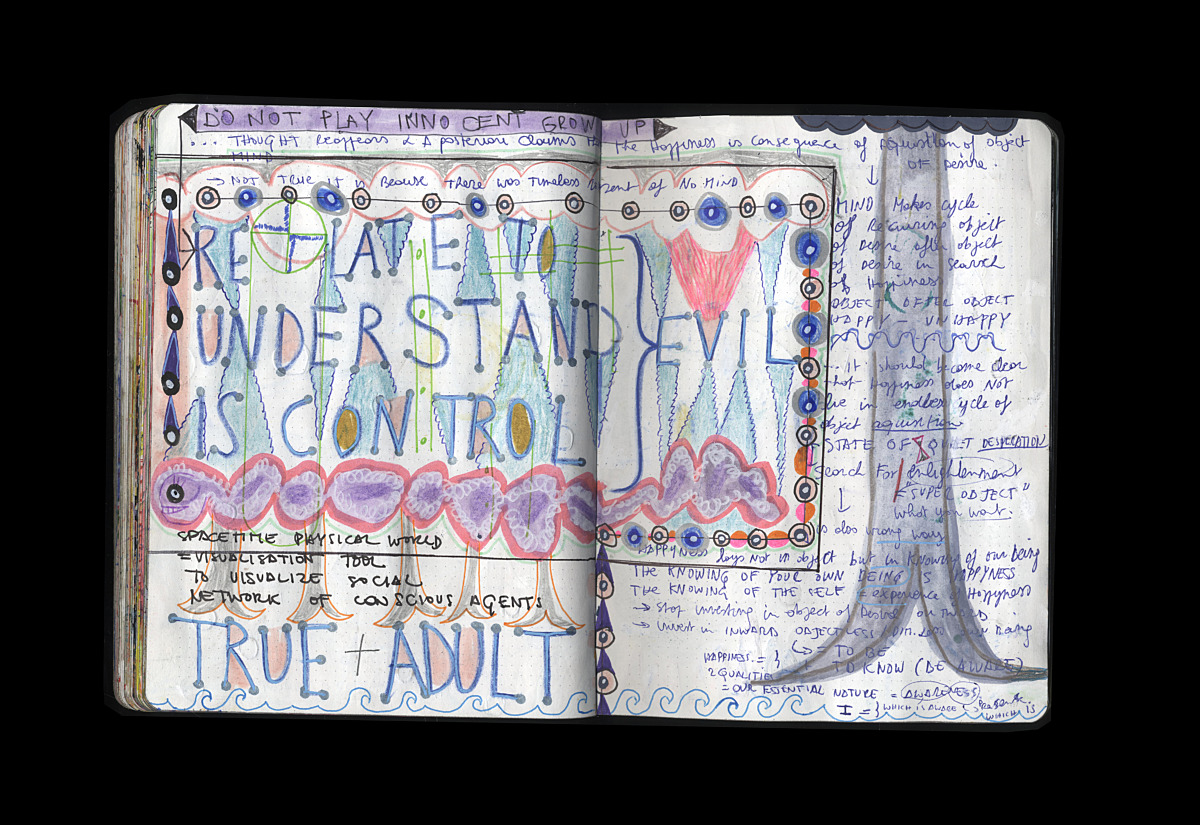 DO NOT PLAY INNOCENT GROW UP
... THOUGHT Reappears & A posteriori Claims The Happiness is consequence of aquisition of object
MIND
OF DESIRE.
→ NOT TRUE it is Because There was Timeless of NO MIND
RE LATE TO
UNDERSTAND } EVIL
IS CONTROL
SPACETIME PHYSICAL WORLD
= VISUALISATION TOOL
TO VISUALIZE SOCIAL
NETWORK OF CONSCIOUS AGENTS
TRUE + ADULT
MIND Makes cycle
of object
of Desire after object
of Desire in search
of Happiness
OBJECT AFTER OBJECT
HAPPY - UNHAPPY
... it should become clear
that Happiness does Not
lie in endless cycle of
object aquisition
STATE OF QUIET DESPERATION
Search For enlightenment
= "SUPER OBJECT"
What you want.
is also wrong way
HAPPYNESS lays not in object but in knowing of our being
THE KNOWING OF YOUR OWN BEING IS HAPPYNESS
THE KNOWING OF THE SELF = experience of Happyness
→ Stop investing in object of Desire
→ Invest in INWARD OBJECTLESS Being
HAPPINESS = { → = TO BE
2 QUALITIES TO KNOW (BE AWARE)
= OUR ESSENTIAL NATURE = AWARENESS
I = { WHICH IS AWARE WHICH IS